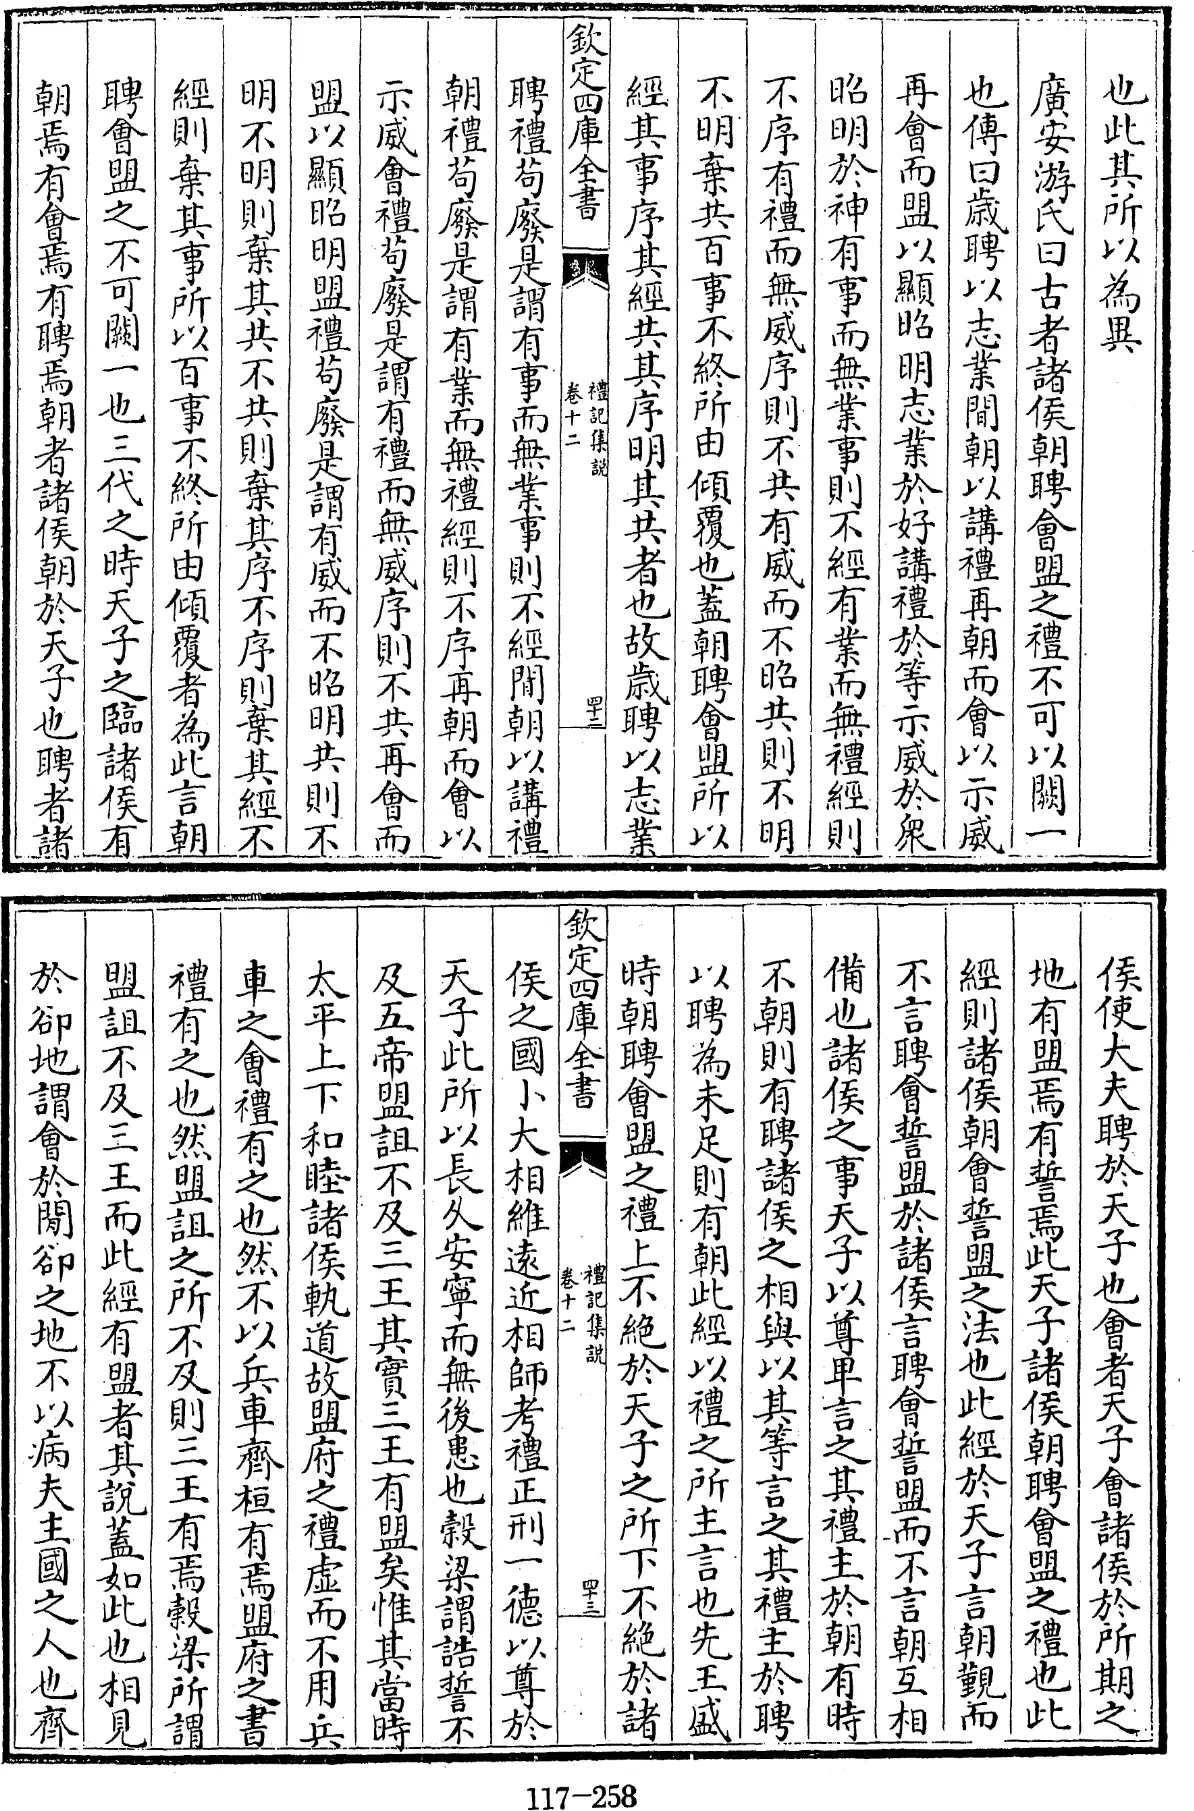 也此其所以為異
廣安游氏曰古者諸侯朝聘會盟之禮不可以闕一
也傳曰歳聘以志業間朝以講禮再朝而會以示威
再會而盟以顯昭明志業於好講禮於等示威於衆
昭明於神有事而無業事則不經有業而無禮經則
不序有禮而無威序則不共有威而不昭共則不明
不明棄共百事不終所由傾覆也蓋朝聘會盟所以
經其事序其經共其序明其共者也故歳聘以志業
欽定四庫全書
禮記集說
卷十二
四十二
聘禮苟廢是謂有事而無業事則不經間朝以講禮
朝禮苟廢是謂有業而無禮經則不序再朝而會以
示威會禮苟廢是謂有禮而無威序則不共再會而
盟以顯昭明盟禮苟廢是謂有威而不昭明共則不
明不明則棄其共不共則棄其序不序則棄其經不
經則棄其事所以百事不終所由傾覆者為此言朝
聘會盟之不可闕一也三代之時天子之臨諸侯有
朝焉有會焉有聘焉朝者諸侯朝於天子也聘者諸
侯使大夫聘於天子也會者天子會諸侯於所期之
地有盟焉有誓焉此天子諸侯朝聘會盟之禮也此
經則諸侯朝會誓盟之法也此經於天子言朝覲而
不言聘會誓盟於諸侯言聘會誓盟而不言朝互相
備也諸侯之事天子以尊卑言之其禮主於朝有時
不朝則有聘諸侯之相與以其等言之其禮主於聘
以聘為未足則有朝此經以禮之所主言也先王盛
時朝聘會盟之禮上不絶於天子之所下不絶於諸
欽定四庫全書
禮記集說
卷十二
四十三
侯之國小大相維遠近相師考禮正刑一德以尊於
天子此所以長久安寧而無後患也穀梁謂誥誓不
及五帝盟詛不及三王其實三王有盟矣惟其當時
太平上下和睦諸侯軌道故盟府之禮虛而不用兵
車之會禮有之也然不以兵車齊桓有焉盟府之書
禮有之也然盟詛之所不及則三王有焉穀梁所謂
盟詛不及三王而此經有盟者其說蓋如此也相見
於卻地謂會於閒卻之地不以病夫主國之人也齊
117-258